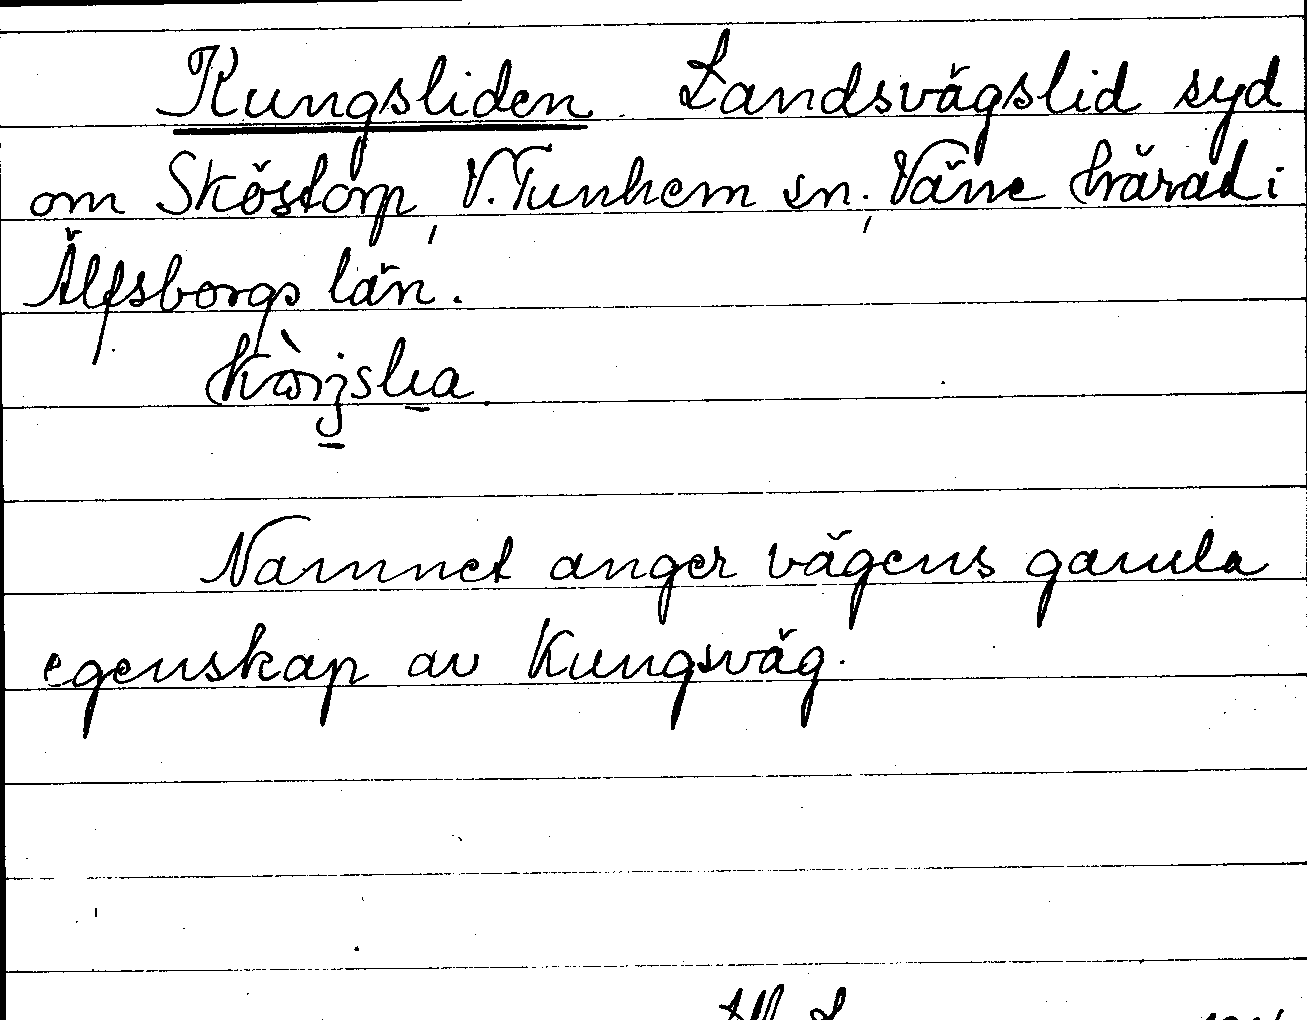 Kungsliden. Landsvägslid syd
om Sköstorp, V. Tunhem sn., Väne härad i
Älfsborgs län.
Namnet anger vägens gamla
egenskap av Kungsväg.